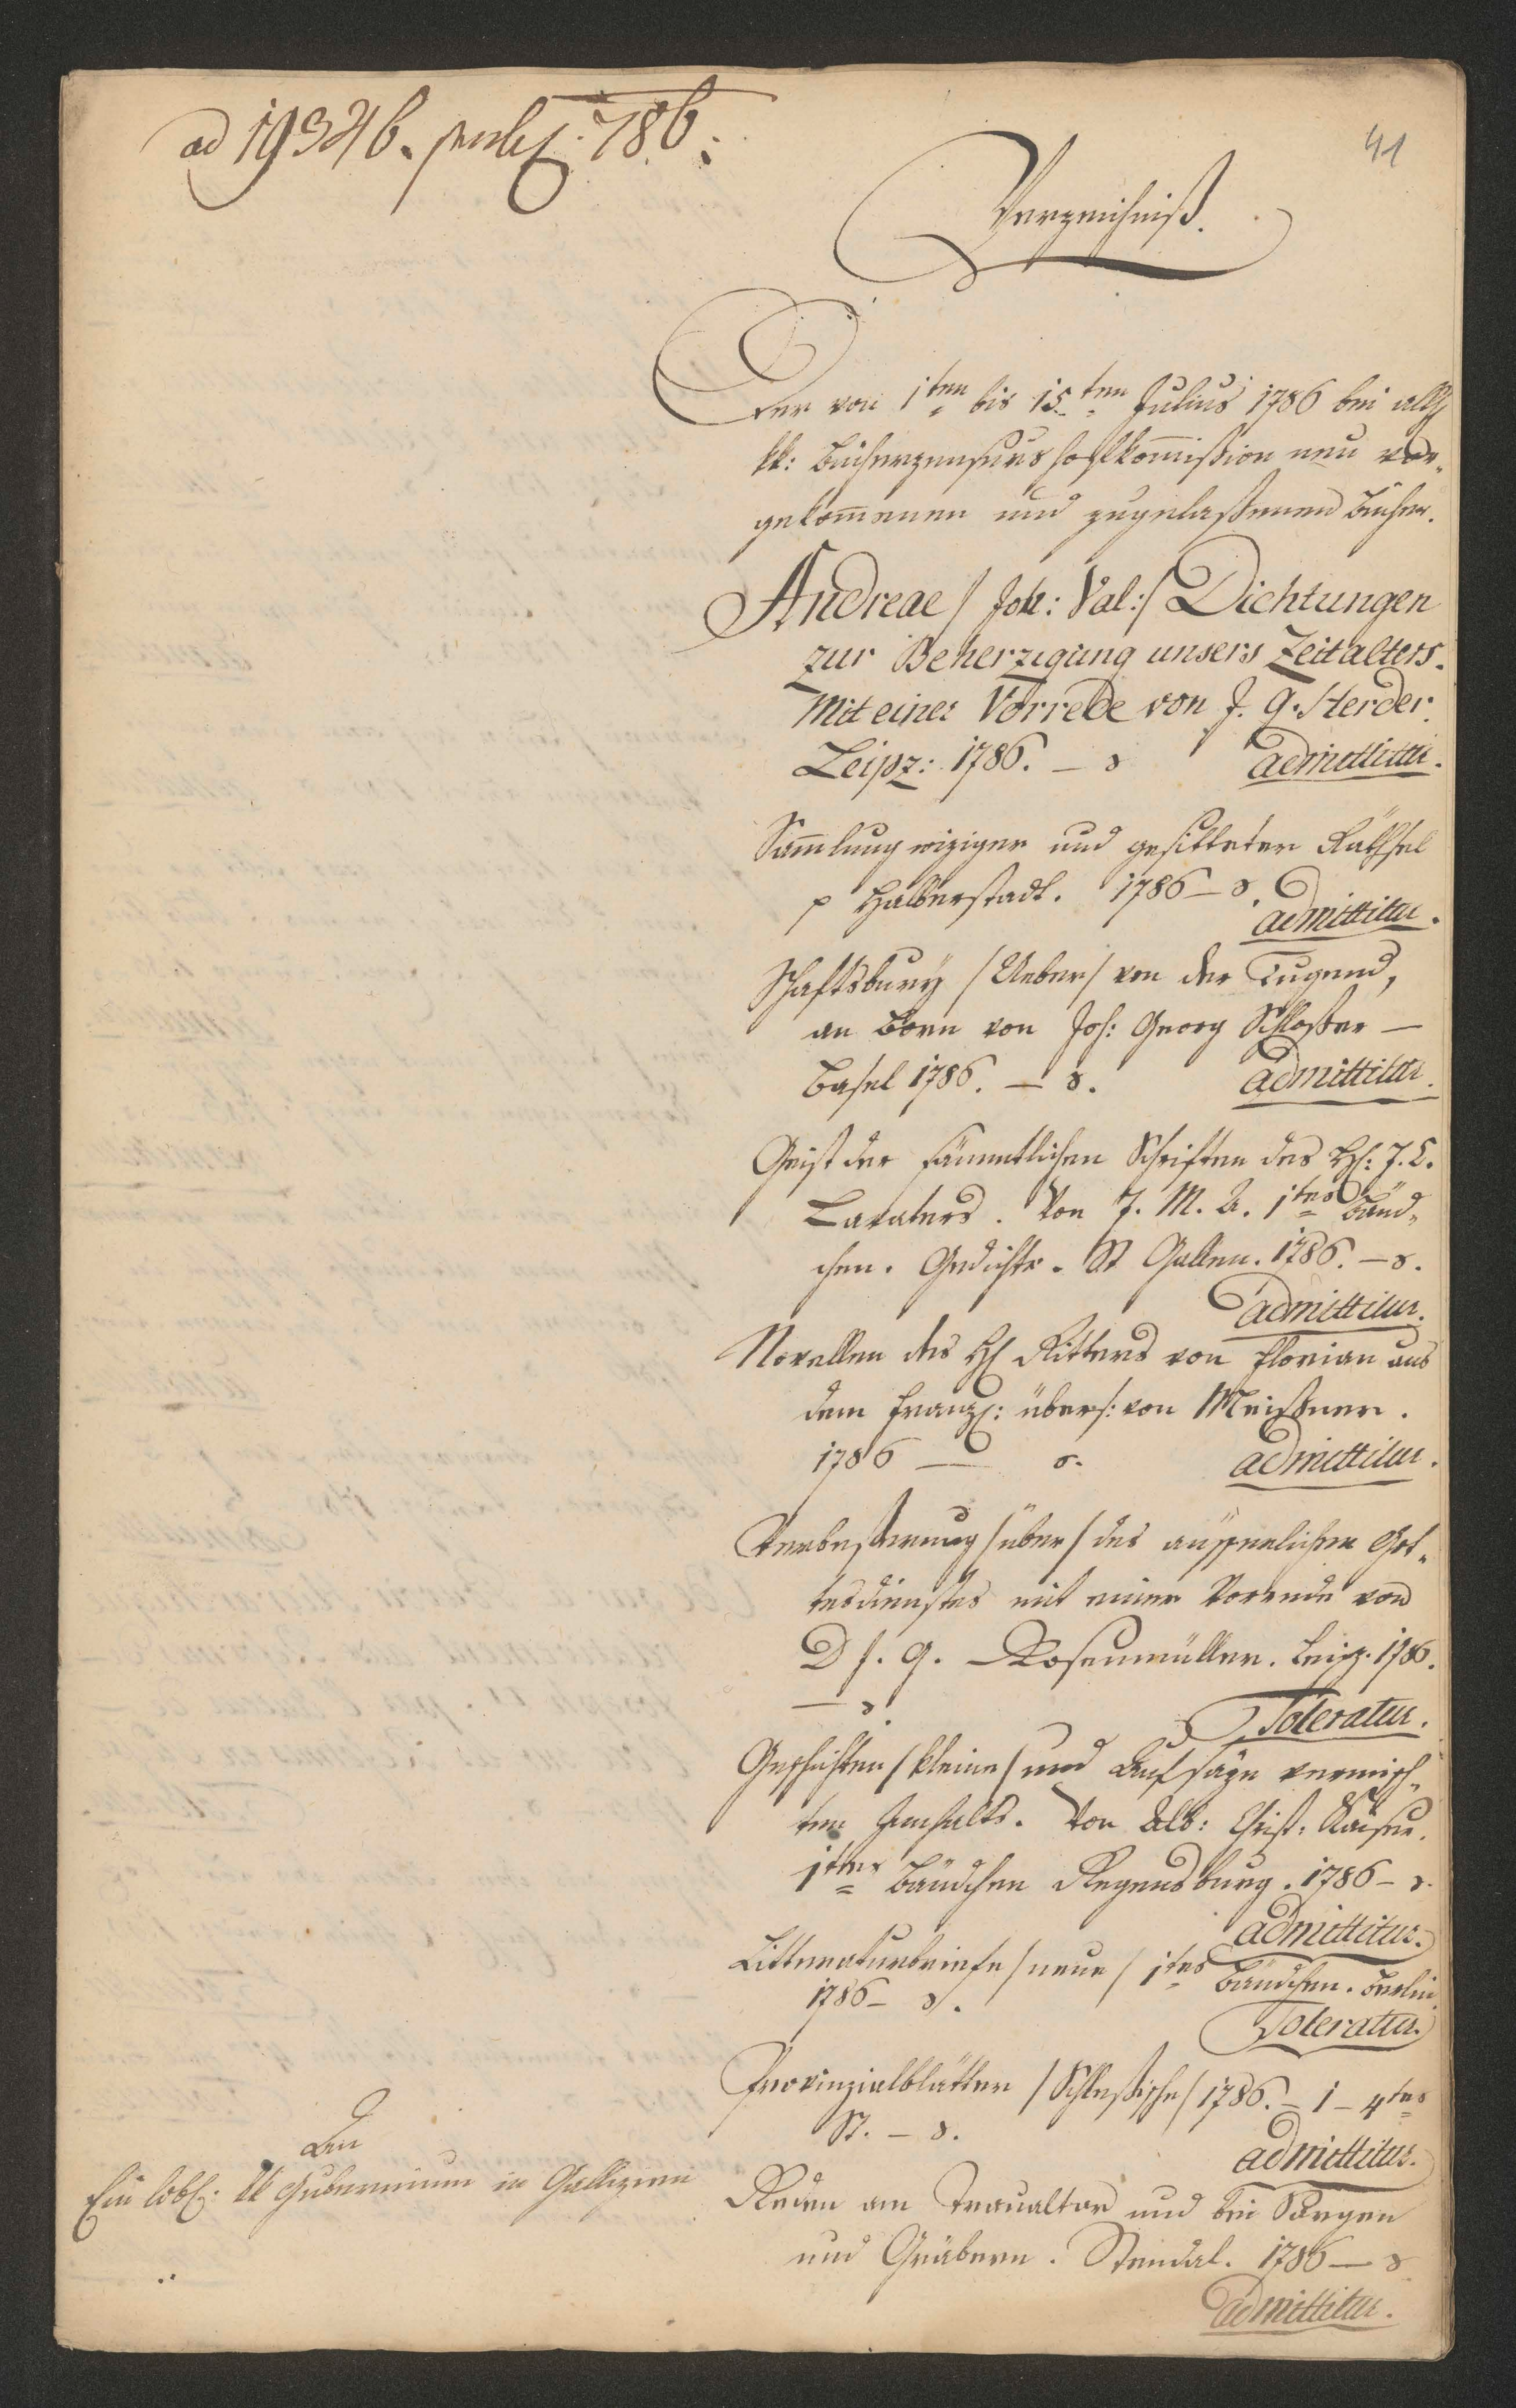 ad 19346. 786.
41
Verzeichniß.
Der von 1ten bis 15ten Julius 1786 bei allh
kk: Bücherzensurshofkom̅ißion neu vor„
gekom̅enen und zugelaßenen Bücher.
Andreae / Joh: Val:/ Dichtungen
zur Beherzigung unsers Zeitalters.
Mit einer Vorrede von J. G. Herder.
Leipz: 1786. – 8 admittitur.
Sam̅lung wiziger und gesitteter Räthsel
p Halberstadt. 1786 – 8.
admittitur.
Schaftsbury /Ueber/ von der Tugend,
an Born von Joh: Georg Schloßer –
Basel 1786. – 8. admittitur.
Geist der sämmtlichen Schriften des H: J. C.
Lavaters. Von J. M. A. 1tes Bänd„
chen. Gedichte. St Gallen. 1786. – 8.
admittitur.
Novellen des H Ritters von Florian aus
dem Franz: übers: von Meißner.
1786 – 8. admittitur.
Verbeßerung /über/ des äusserlichen Got„
tesdienstes mit einer Vorrede von
D J. G. Rosenmüller. Leipz. 1786.
– 8.
Toleratur.
Geschichten /kleine/ und Aufsäze vermisch„
ten Innhalts. Von Alb: Christ: Kaiser.
1tes Bändchen Regensburg. 1786 – 8.
admittitur.
Litteraturbriefe /neue/ 1tes Bändchen. Berlin
1786 – 8.
Toleratur.
Provinzialblätter /Schlesische/ 1786. – 1 – 4tes
St. – 8.
admittitur.
Reden am Traualtar und bei Särgen
und Gräbern. Stendal. 1786 – 8
admittitur.
An
Ein löbl: kk Gubernium in Gallizien